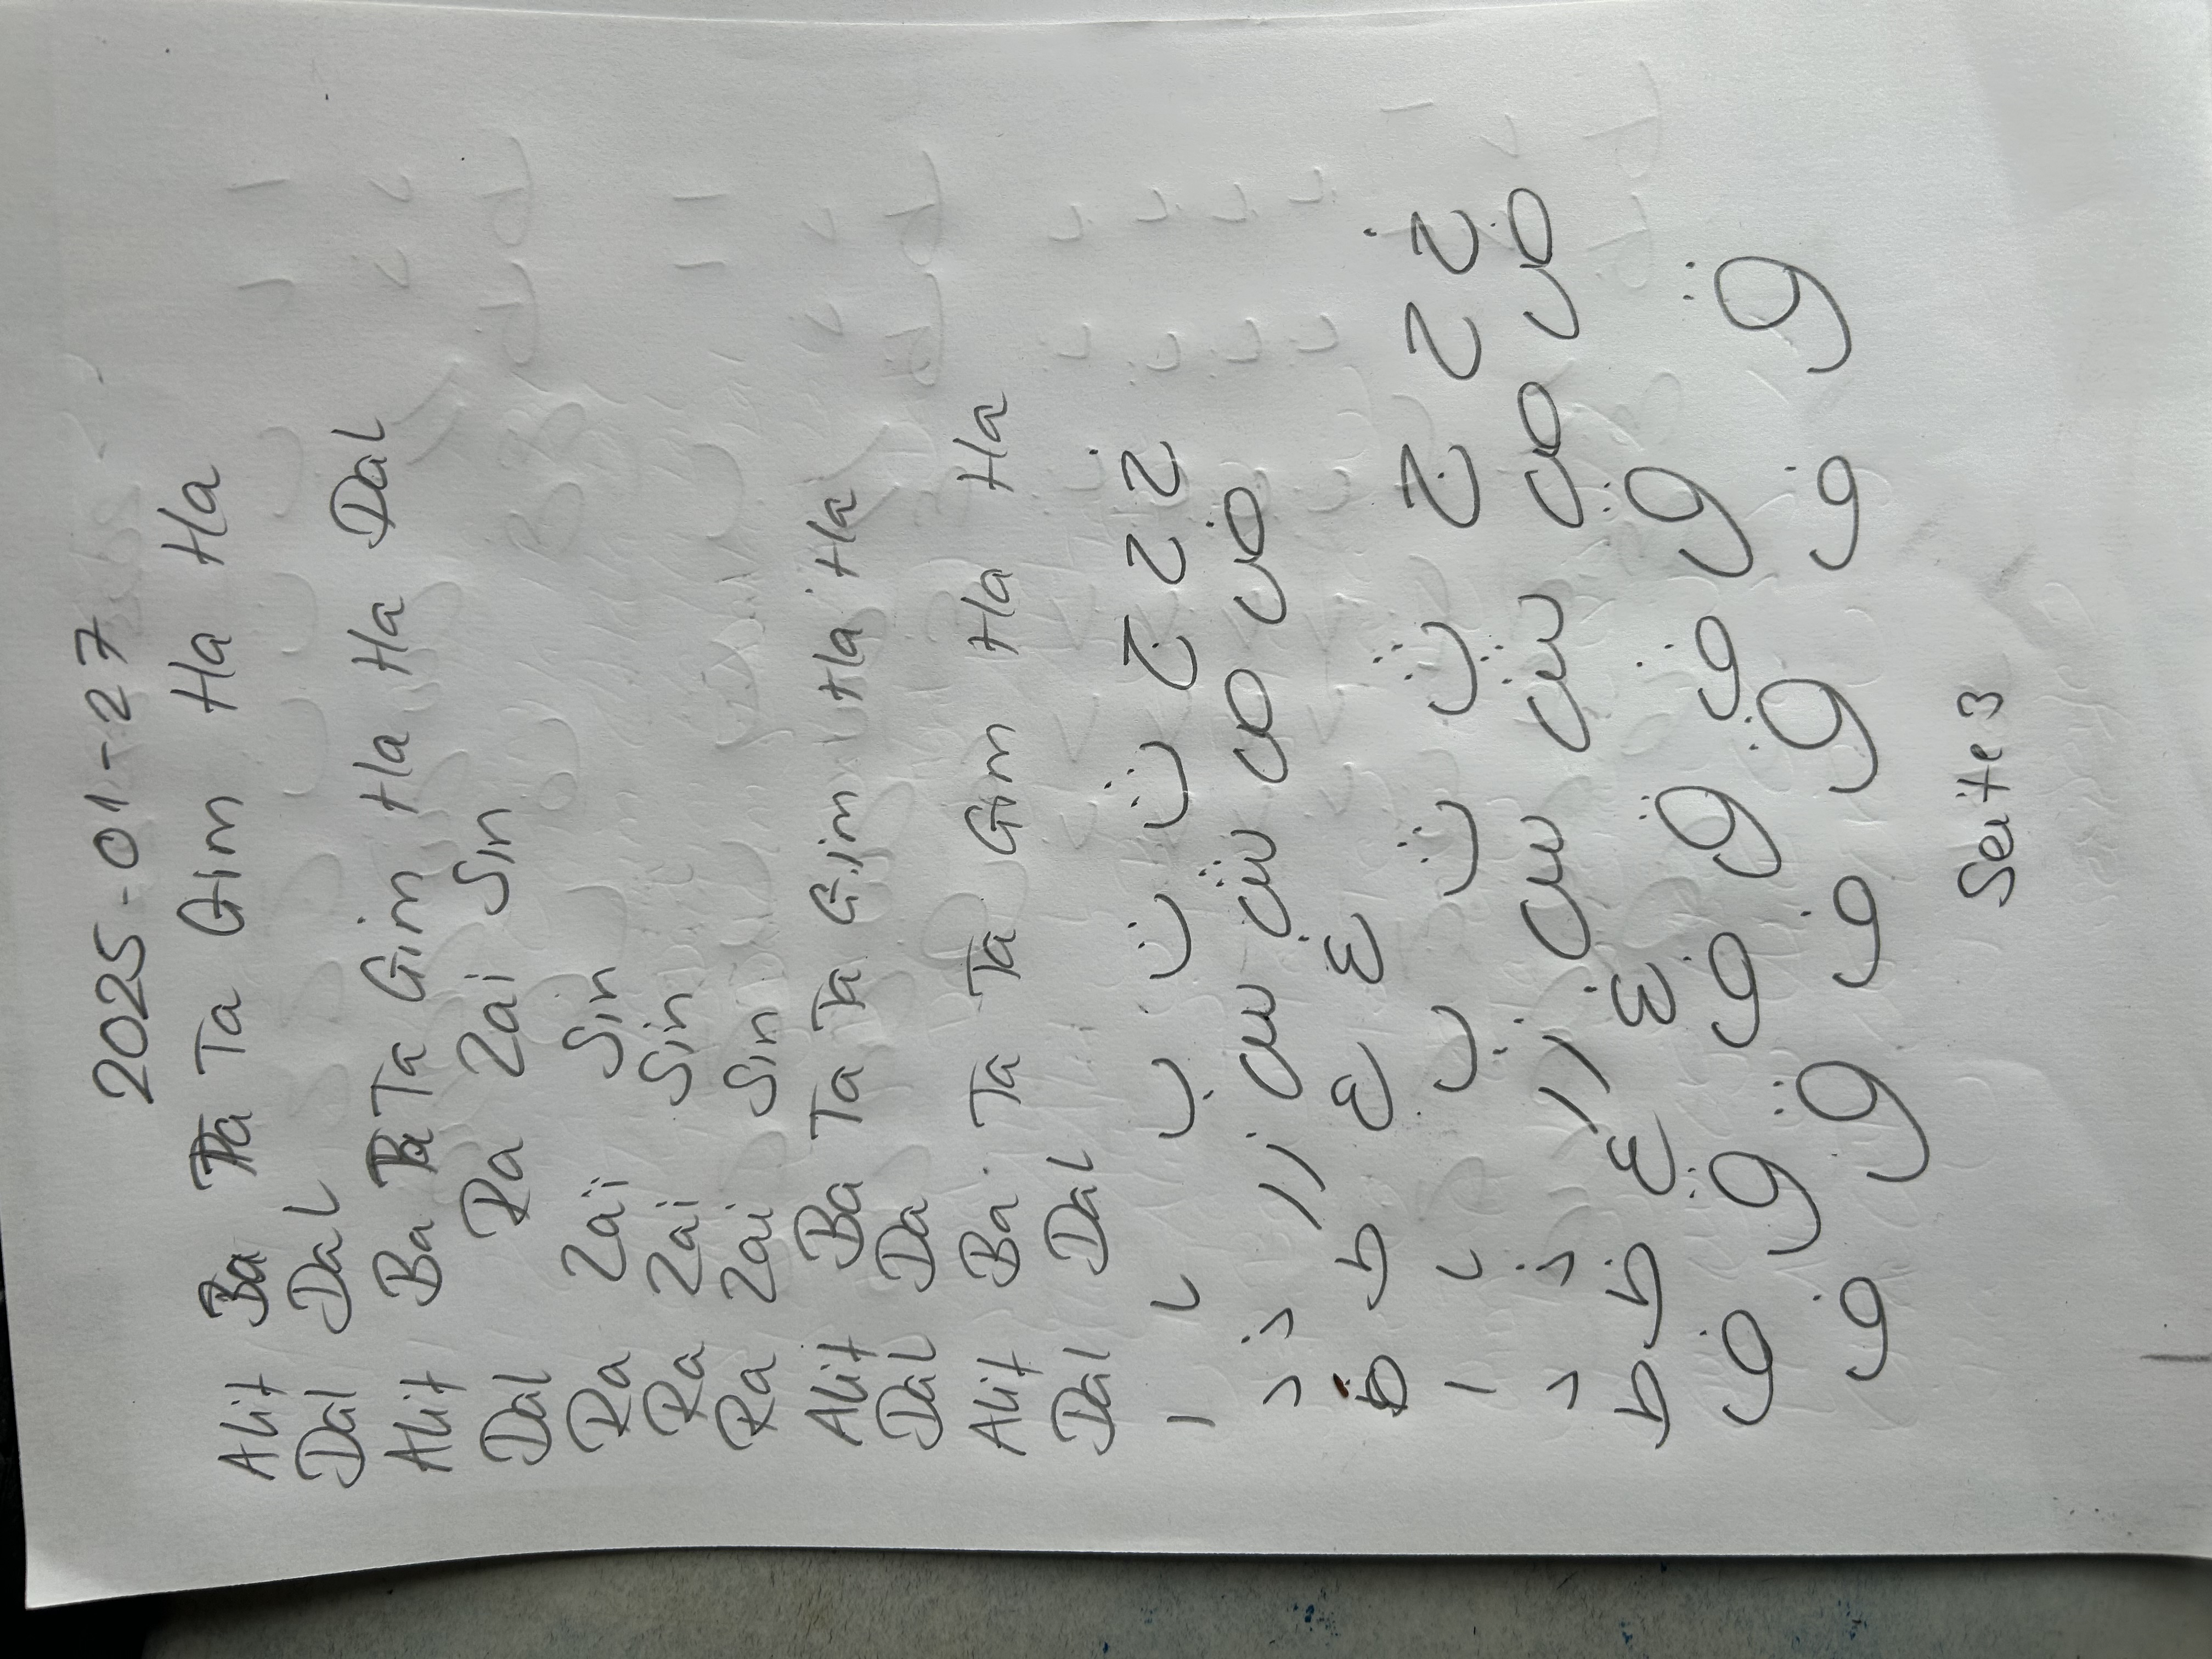 2025-01-27
Alif Ba Ta Ta Gim Ha Ha
Dal Dal
Alif Ba Ba Ta Gim Ha Ha Dal
Dal Ra Zai Sin
Ra Zai Sin
Ra Zai Sin
Ra Zai Sin
Alif Ba Ta Ta Gim Ha Ha
Dal Da
Alif Ba Ta Ta Gim Ha Ha
Dal Dal
ا ب ت ث ج ح خ
د ذ ر ز س ش ص ض
ط ط ع غ
ا ب ت ث ج ح خ
د ذ ر ز س ش ص ض
ط ظ ع غ
ف ق ف ق ف ق
ف ق ف ق ف ق
Seite 3